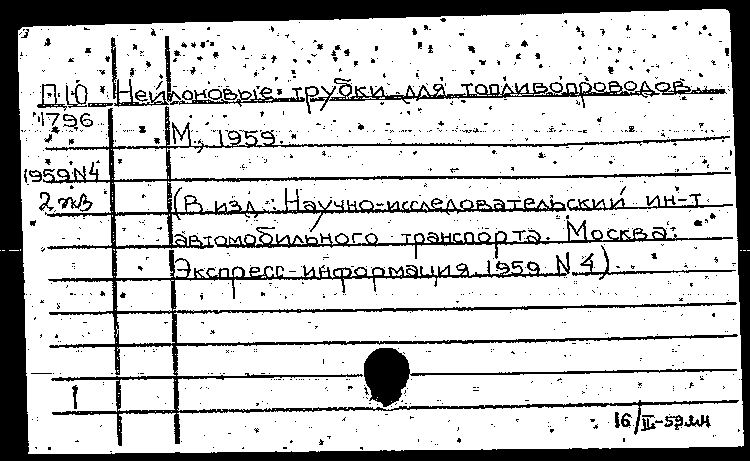 П10 Нейлоновые трубки для топливопроводов.
1796
М., 1959.
1959N4
2 экз
(В изд.: Научно-исследовательский ин-т
автомобильного транспорта. Москва.
Экспресс-информация. 1959 N 4).
1
16/II-59